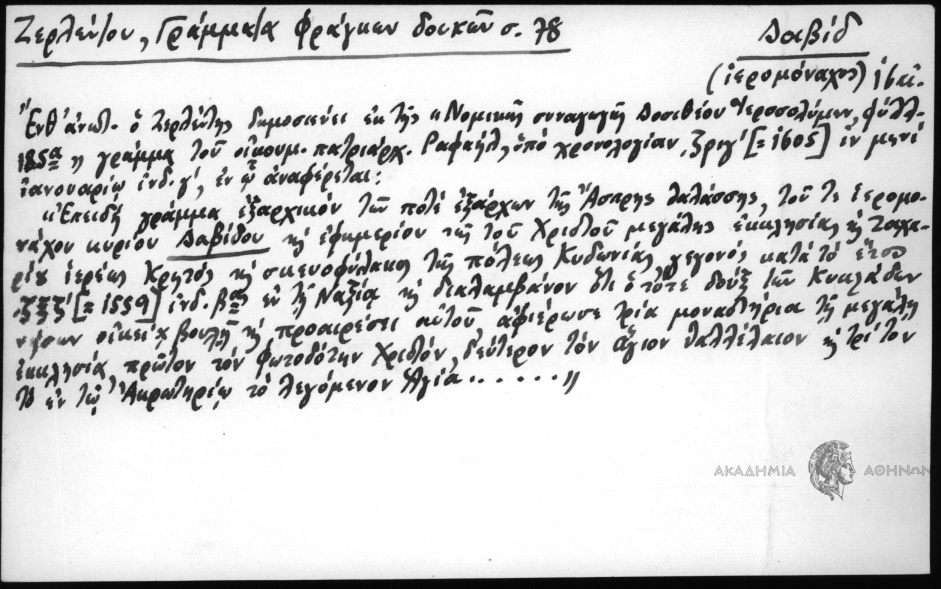 Ζερλέντου, Γράμματα Φράγκων δουκῶν σ. 78
Δαβίδ
(ἱερομόναχος)
Ἔνθ' ἀνωτ. ὁ Ζερλέντης δημοσιεύει ἐκ τῆς «Νομικῆς συναγωγῆς Δοσιθέου Ἱεροσολύμων, φύλλ.
185α ϗ γράμμα τοῦ οἰκουμ. πατριάρχ. Ραφαήλ, ὑπό χρονολογίαν ͵ζριγ' [= 1605] ἐν μηνί
ἰανουαρίῳ ἰνδ. γ', ἐν ᾧ ἀναφέρεται:
«Ἐπειδή γράμμα ἐξαρχικόν τῶν ποτέ ἐξάρχων τῆς Ἄσπρης θαλάσσης, τοῦ τε ἱερομο-
νάχου κυρίου Δαβίδου ϗ ἐφημερίου τῆς τοῦ Χριστοῦ μεγάλης ἐκκλησίας ϗ Ζαχα-
ρίου ἱερέως Κρητός ϗ σκευοφύλακος τῆς πόλεως Κυδωνίας γεγονός κατά τό ἔτος
͵ζξζ' [= 1559] ἰνδ. βας ἐν τῇ Ναξίᾳ ϗ διαλαμβάνον ὅτι ὁ τότε δούξ τῶν Κυκλάδων
νήσων οἰκείᾳ βουλῇ ϗ προαιρέσει αὐτοῦ, ἀφιέρωσε τρία μοναστήρια τῇ μεγάλῃ
ἐκκλησίᾳ πρῶτον τόν Φωτοδότην Χριστόν, δεύτερον τόν ἅγιον Θαλλέλαιον ϗ τρίτον
τό ἐν τῷ Ἀκρωτηρίῳ τό λεγόμενον Ἁγία . . . . . . »
ΑΚΑΔΗΜΙΑ ΑΘΗΝΩΝ